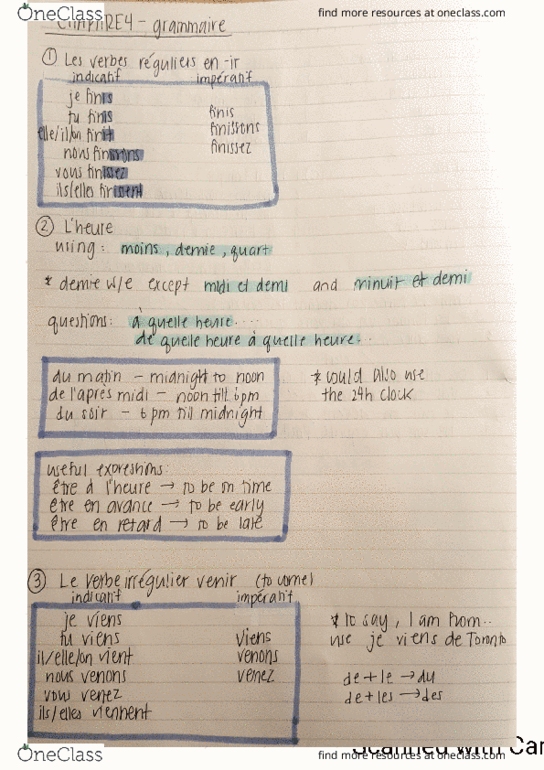 OneClass
find more resources at oneclass.com
CHAPITRE 4 - grammaire
① Les verbes réguliers en -ir
indicatif impératif
je finis
tu finis finis
elle/il/on finit finissons
nous finissons finissez
vous finissez
ils/elles finissent
② L'heure
using: moins, demie, quart
* demie w/e except midi et demi and minuit et demi
questions: à quelle heure....
de quelle heure à quelle heure..
du matin – midnight to noon
de l'après midi – noon till 6pm
du soir – 6pm till midnight
* could also use
the 24h clock
useful expressions:
être à l'heure → to be on time
être en avance → to be early
être en retard → to be late
③ Le verbe irrégulier venir (to come)
indicatif impératif
je viens
tu viens viens
il/elle/on vient venons
nous venons venez
vous venez
ils/elles viennent
* to say, I am from..
use je viens de Toronto
de + le → du
de + les → des
Scanned with Car
OneClass
find more resources at oneclass.com